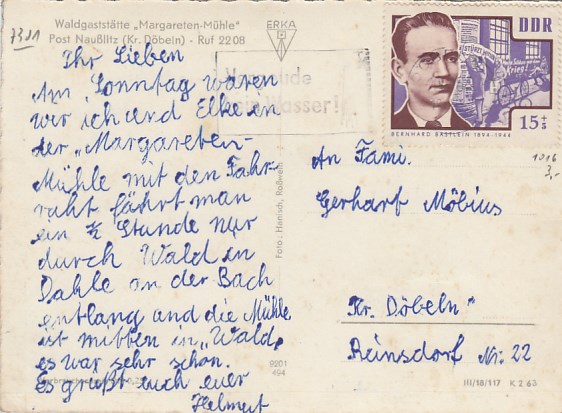 7311
Waldgaststätte „Margareten-Mühle"
Post Naußlitz (Kr. Döbeln) - Ruf 2208
ERKA
DDR
15+5
BERNHARD BÄSTLEIN 1894-1944
1016
3,-
Ihr Lieben
Am Sonntag waren
wir ich und Elke in
der „Margareten-
Mühle mit den Fahr-
raht fährt man
ein ½ Stunde nur
durch Wald in
Dahle an der Bach
entlang und die Mühle
ist mitten in „Wald„
es war sehr schön.
Es grüßt euch euer
Helmut
Foto: Hamisch, Roßwein
9201
494
An Fami.
Gerharf Möbius
Kr. Döbeln"
Reinsdorf Nr. 22
III/18/117 K 2 63